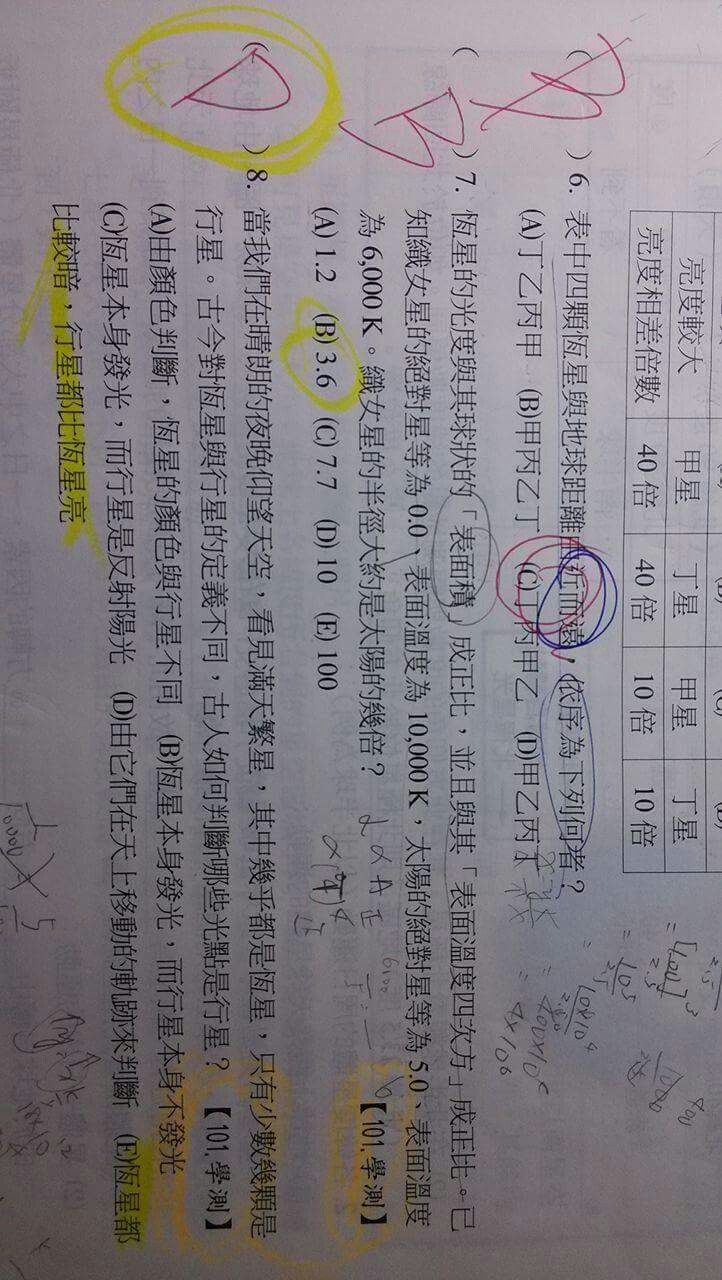 亮度較大 甲星 丁星 甲星 丁星
亮度相差倍數 40 倍 40 倍 10 倍 10 倍
B ( ) 6. 表中四顆恆星與地球距離由近而遠，依序為下列何者？
(A)丁乙丙甲 (B)甲丙乙丁 (C)丁丙甲乙 (D)甲乙丙丁
B ( ) 7. 恆星的光度與其球狀的「表面積」成正比，並且與其「表面溫度四次方」成正比。已
知織女星的絕對星等為 0.0、表面溫度為 10,000 K，太陽的絕對星等為 5.0、表面溫度
為 6,000 K。織女星的半徑大約是太陽的幾倍？ 【101.學測】
(A) 1.2 (B) 3.6 (C) 7.7 (D) 10 (E) 100
D ( ) 8. 當我們在晴朗的夜晚仰望天空，看見滿天繁星，其中幾乎都是恆星，只有少數幾顆是
行星。古今對恆星與行星的定義不同，古人如何判斷哪些光點是行星？ 【101.學測】
(A)由顏色判斷，恆星的顏色與行星不同 (B)恆星本身發光，而行星本身不發光
(C)恆星本身發光，而行星是反射陽光 (D)由它們在天上移動的軌跡來判斷 (E)恆星都
比較暗，行星都比恆星亮